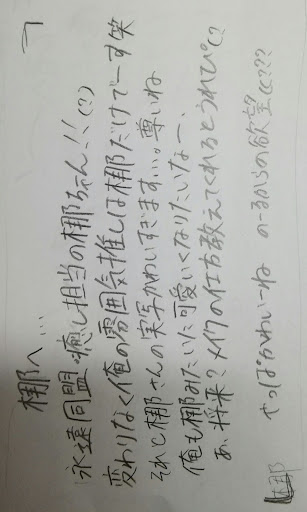 梛へ…
永遠同盟・癒し担当の梛ちゃん!!(?)
変わりなく俺の雰囲気推しは梛だけでーす笑
それと梛さんの実写かわいすぎます…。尊いね
俺も梛みたいに可愛いくなりたいなー、
あ、将来?メイクの仕方教えてくれるとうれぴ(?
やっぱかわいーね のーるからの欲望(????
梛